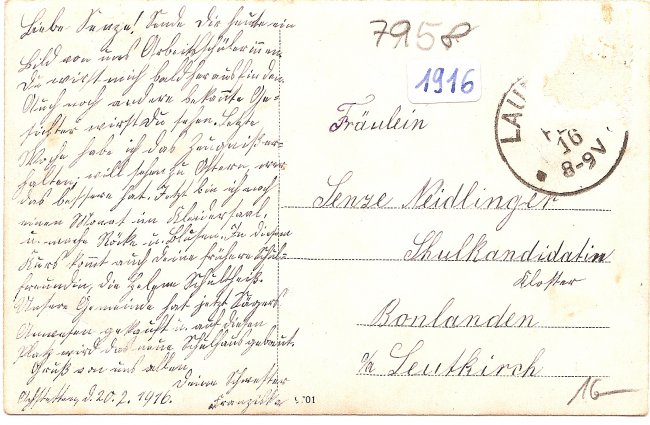 Liebe Senze! Sende Dir heute ein
Bild von uns Arbeitsschülerinnen
Du wirst mich bald herausfinden
Auch noch andere bekannte Ge-
sichter wirst Du sehen. Letzte
Woche habe ich das Zeugniß er-
halten, will sehen zu Ostern, wer
das bessere hat. Jetzt bin ich noch
einen Monat im Kleidersaal,
u. mache Röcke u. Blusen. In diesen
Kurs kommt auch deine frühere Schul-
freundin, die Schultheiß.
Unsere Gemeinde hat jetzt Jägers
Anwesen gekauft u. auf diesen
Platz wird das neue Schulhaus gebaut.
Gruß von uns allen
Deine Schwester
Franziska
d. 20.2.1916.
7958
1916
LAU
16
8-9V.
Fräulein
Senze Neidlinger
Shulkandidatin
Kloster
Bonlanden
Leutkirch
16